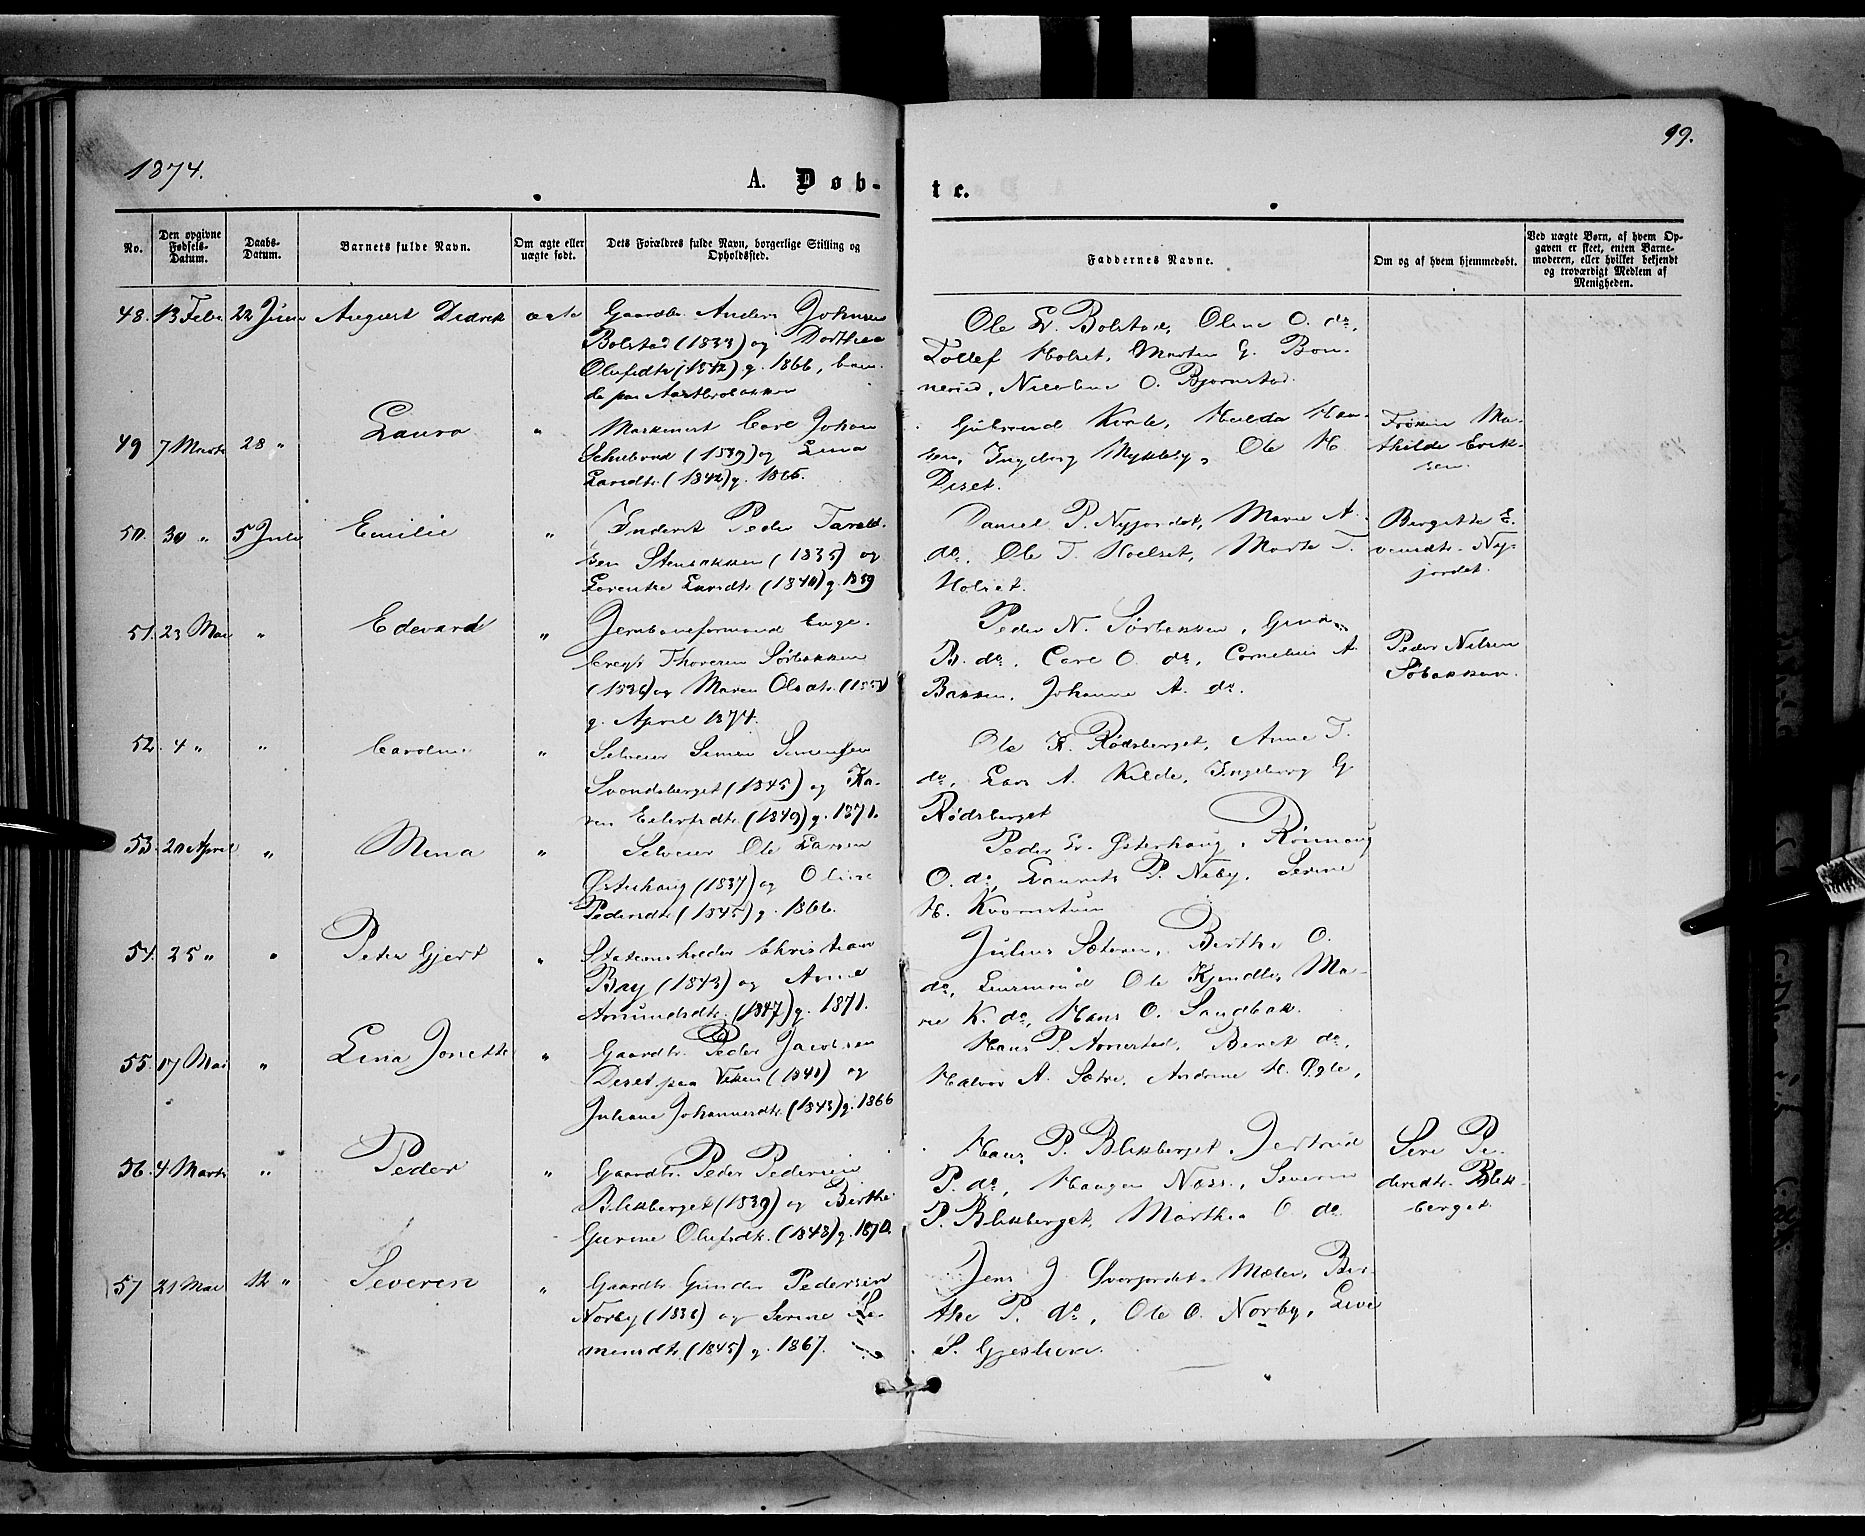 1874.
99.
A. Døb-
te.
No.
Den opgivne Fødsels-Datum.
Daabs-Datum.
Barnets fulde Navn.
Om ægte eller uægte født.
Dets Forældres fulde Navn, borgerlige Stilling og Opholdssted.
Faddernes Navne.
Om og af hvem hjemmedøbt.
Ved uægte Børn, af hvem Opgaven er skeet, enten Barnemoderen, eller hvilket bekjendt og troværdigt Medlem af Menigheden.
48. 13 Febr. 22 Juni August Didrik ægte
Gaardbr. Anders Johnsen
Bolstad (1833) og Dorthea
Olufsdtr. (1842) g. 1866, boen-
de paa
Ole E. Bolstad, Oline O. do,
Tollef Holset, Marten G. Bon-
nerud, Nicoline O. Bjørnstad.
49 7 Marts 28 " Laura "
Carl Johan
(1839) og Lina
Larsdtr. (1842) g. 1865.
Gulbrand Kvale, Hulda Han-
sen, Ingeborg Mykleby, Ole H.
Diset.
Frøken Ma-
thilde Erik-
sen.
50. 30 " 5 Juli Emilie "
Inderst Peder Tarald-
sen Stenbakken (1835) og
Lorentse Larsdtr. (1840) g. 1859
Daniel P. Nyjordet, Marie A.
do, Ole T. Hoelset, Marte T.
Holset.
Bergitte E-
vensdtr. Ny-
jordet.
51. 23 Mai " Edevard "
Jernbaneformand Enge-
bregt Thoresen Sørbakken
(1836) og Maren Olsdtr.
g. April 1874.
Peder N. Sørbakken,
B. do, Carl O. do, Cornelius A.
Bakken, Johanne A. do.
Peder Nilsen
Søbakken.
52. 4 " " Caroline "
Selveier Simen Simensen
Svendsberget (1845) og Ka-
ren Eilertsdtr. (1849) g. 1871.
Ole K. Rødsberget, Anne T.
do, Lars A. Kilde, Ingeborg G
Rødsberget
53. 20 April " Mina "
Selveier Ole Larsen
Østerhaug (1837) og Oline
Pedersdtr. (1845) g. 1866.
Peder E. Østerhaug, Rønnaug
O. do, Laurits P. Neby, Serine
H. Kvernstuen
54. 25 " " Peter Gjert "
Stationsholder Christian
Bay (1843) og Anne
Amundsdtr. (1847) g. 1871.
Julius Sæteren, Berthe O.
do, Lensmand Ole Kjendlie, Ma-
rie K. do, Hans O. Sandbak.
55. 17 Mai " Lina Jonette "
Gaardbr. Peder Jacobsen
Diset paa Viken (1840) og
Juliane Johannesdtr. (1843) g. 1866
Hans P. Arnestad, Beret do,
Halvor A. Sætre, Andrine H. Øgle,
56. 4 Marts " Peder "
Gaardbr. Peder Pedersen
Blikberget (1839) og Berthe
Gurine Olufsdtr. (1848) g. 1870.
Hans P. Blikberget, Jertrud
P. do, Haagen Næss, Severin
P. Blikberget, Marthea O do
Siri Pe-
dersdtr. Blik-
berget.
57 21 Mai 12 " Severen "
Gaardbr. Gunder Pedersen
Norby (1836) og Serine Si-
mensdtr. (1845) g. 1867.
Jens J. Sverjordet Mælen, Ber-
the P. do, Ole O. Norby, Live
S. Gjeshun.